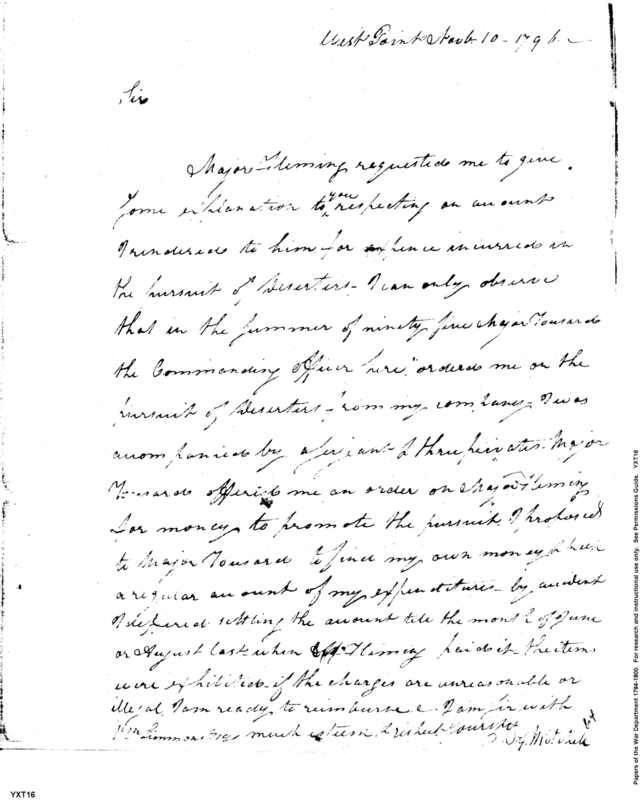 West Point Novb 10 - 1796 -
Sir
Major Fleming requested me to give
some explanation to you respecting an account
I rendered to him for expence incurred in
the pursuit of Deserters - I can only observe
that in the Summer of ninety five Major Tousard
the Commanding Officer here ordered me on the
pursuit of Deserters from my company - I was
accompanied by a serjeant & three privates - Major
Tousard offered me an order on Major Fleming
for money to promote the pursuit, I proposed
to Major Tousard to find my own money & keep
a regular account of my expenditures - by accident
I defered settling the account till the month of June
or August last when Fleming paid it the items
were exhibited if the charges are unreasonable or
illegal, I am ready to reimburse & I am sir with
Simmons Esqr much esteem & respect your
Mitchell
Papers of the War Department 1784-1800. For research and instructional use only. See Permissions Guide. YXT16
YXT16